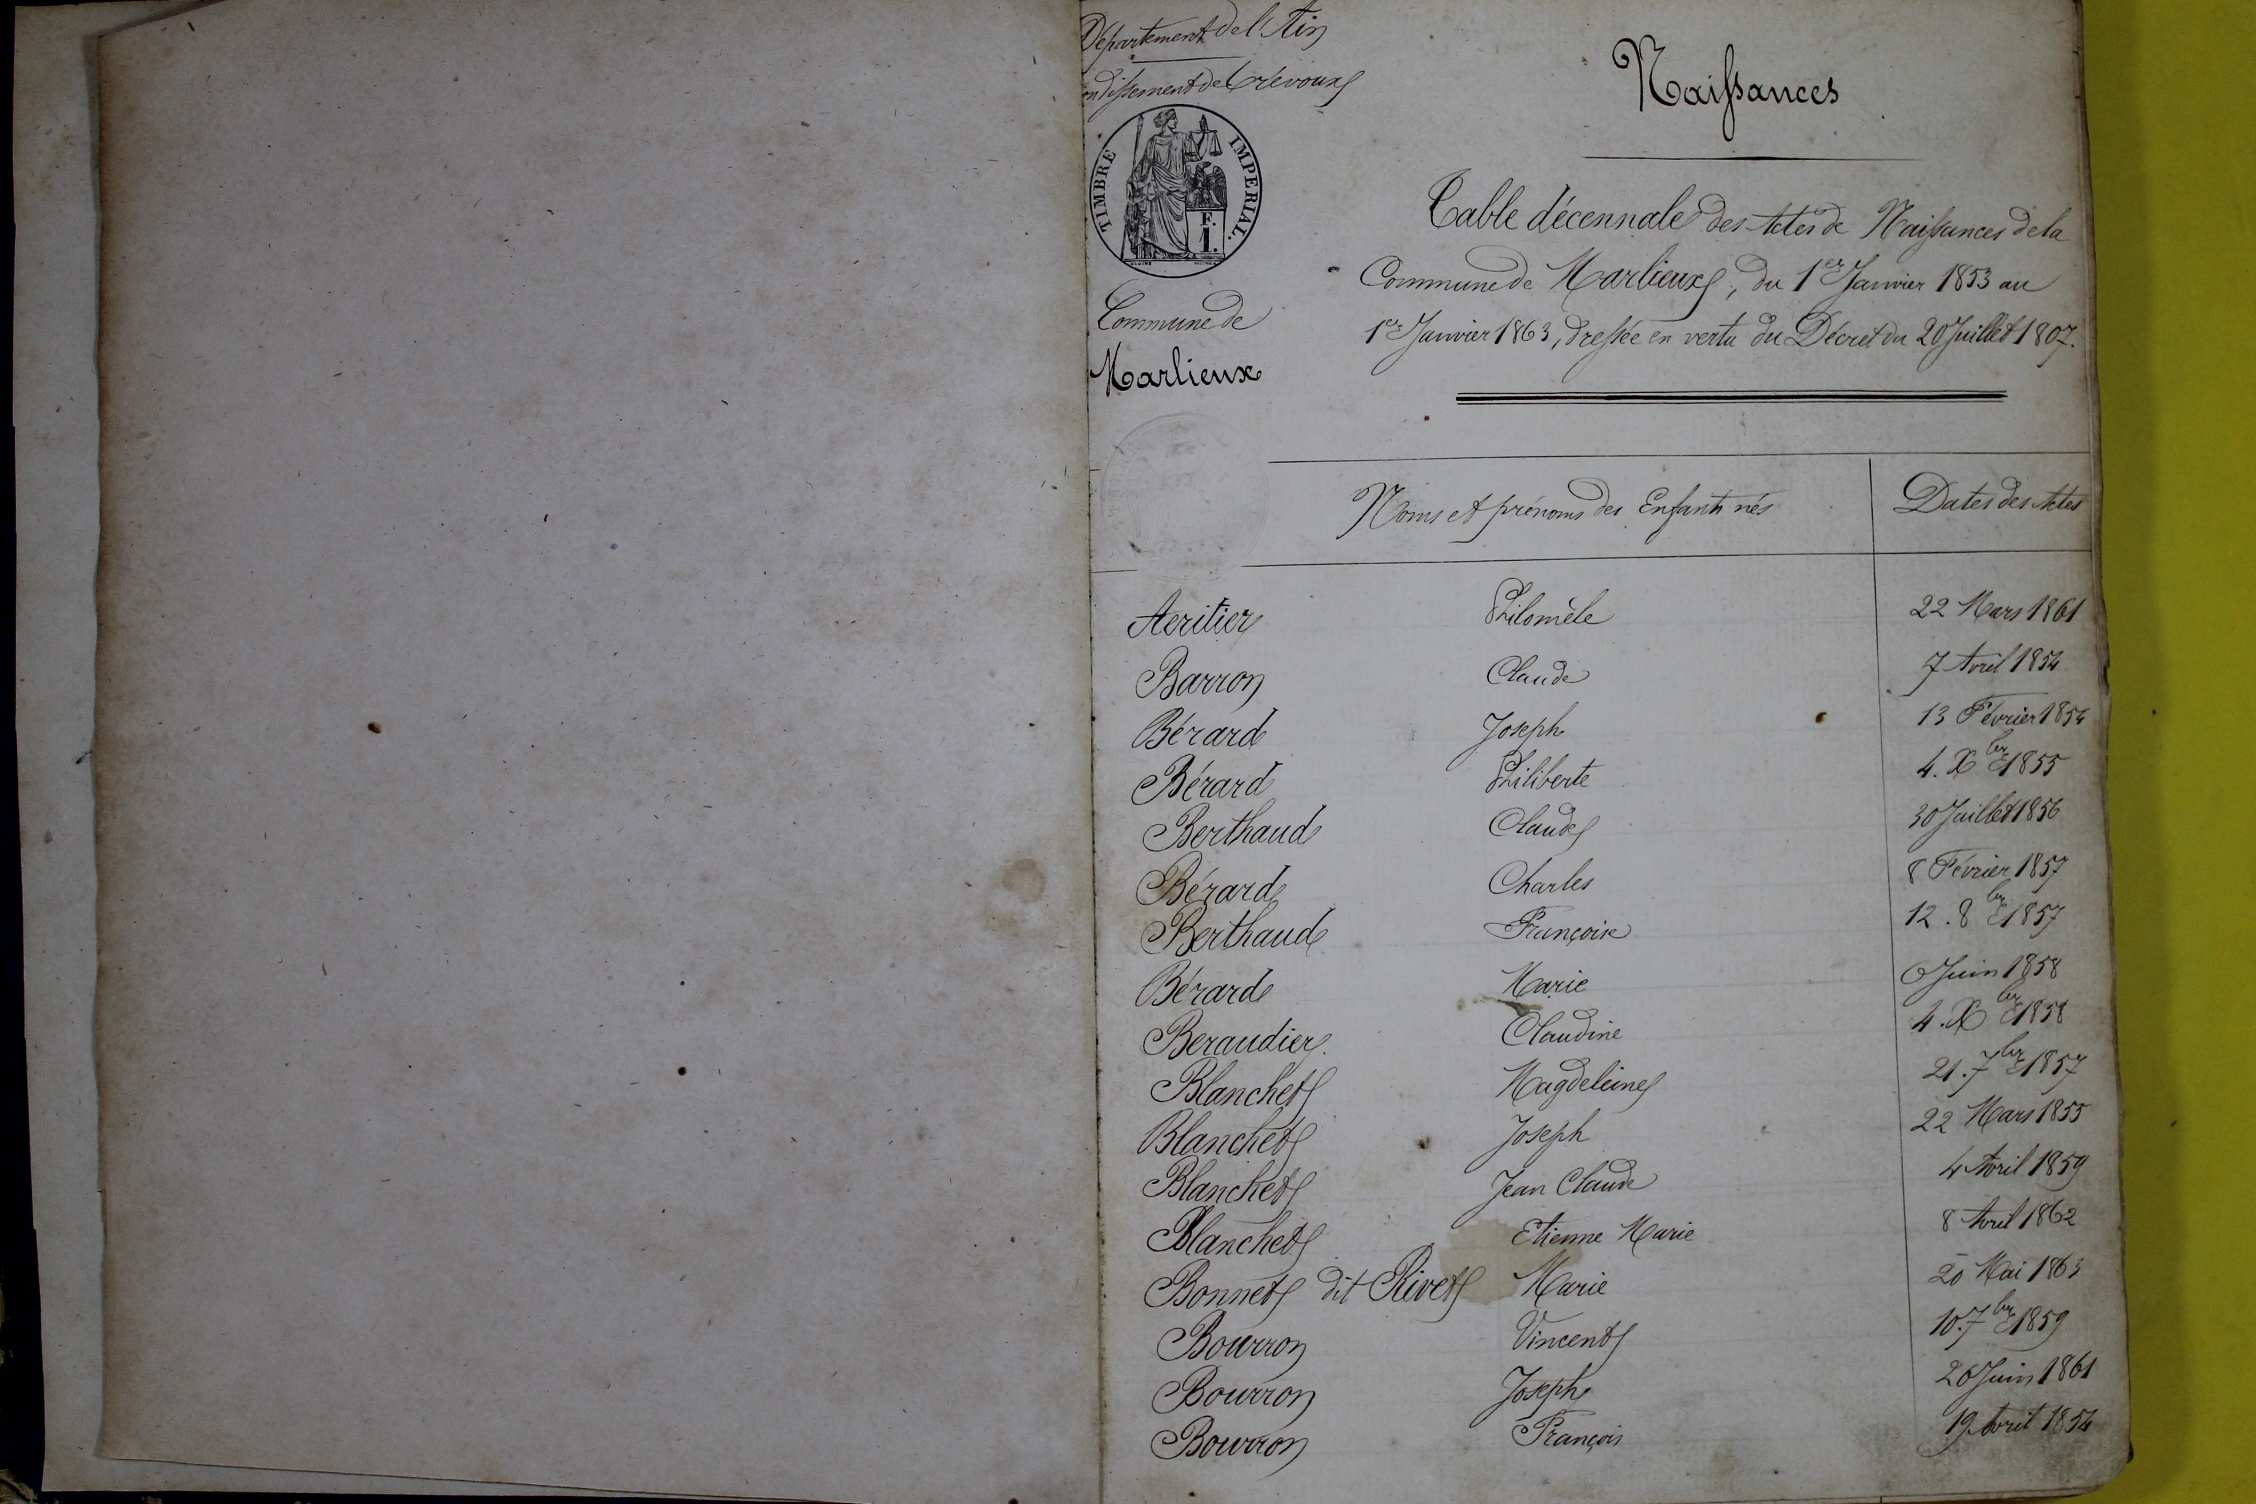 Département de l'Ain
ondissement de Trévoux
TIMBRE IMPERIAL.
F.
1.
Commune de
Marlieux
Naissances
Table décennale des Actes de Naissances de la
Commune de Marlieux, du 1er Janvier 1853 au
1er Janvier 1863, dressée en vertu du Décret du 20 Juillet 1807.
Noms et prénoms des Enfants nés Dates des Actes
Aeritier Philomèle 22 Mars 1861
Barron Claude 7 Avril 1854
Bérard Joseph 13 Février 1854
Bérard Philiberte 4. Xbre 1855
Berthaud Claude 30 Juillet 1856
Bérard Charles 8 Février 1857
Berthaud Françoise 12. 8bre 1857
Bérard Marie 6 Juin 1858
Beraudier. Claudine 4. Xbre 1858
Blanchet Magdeleine 21. 7bre 1857
Blanchet Joseph 22 Mars 1855
Blanchet Jean Claude 4 Avril 1859
Blanchet Etienne Marie 8 Avril 1862
Bonnet dit Rivet Marie 20 Mai 1863
Bourron Vincent 10. 7bre 1859
Bourron Joseph 26 Juin 1861
Bourron François 19 Avril 1854